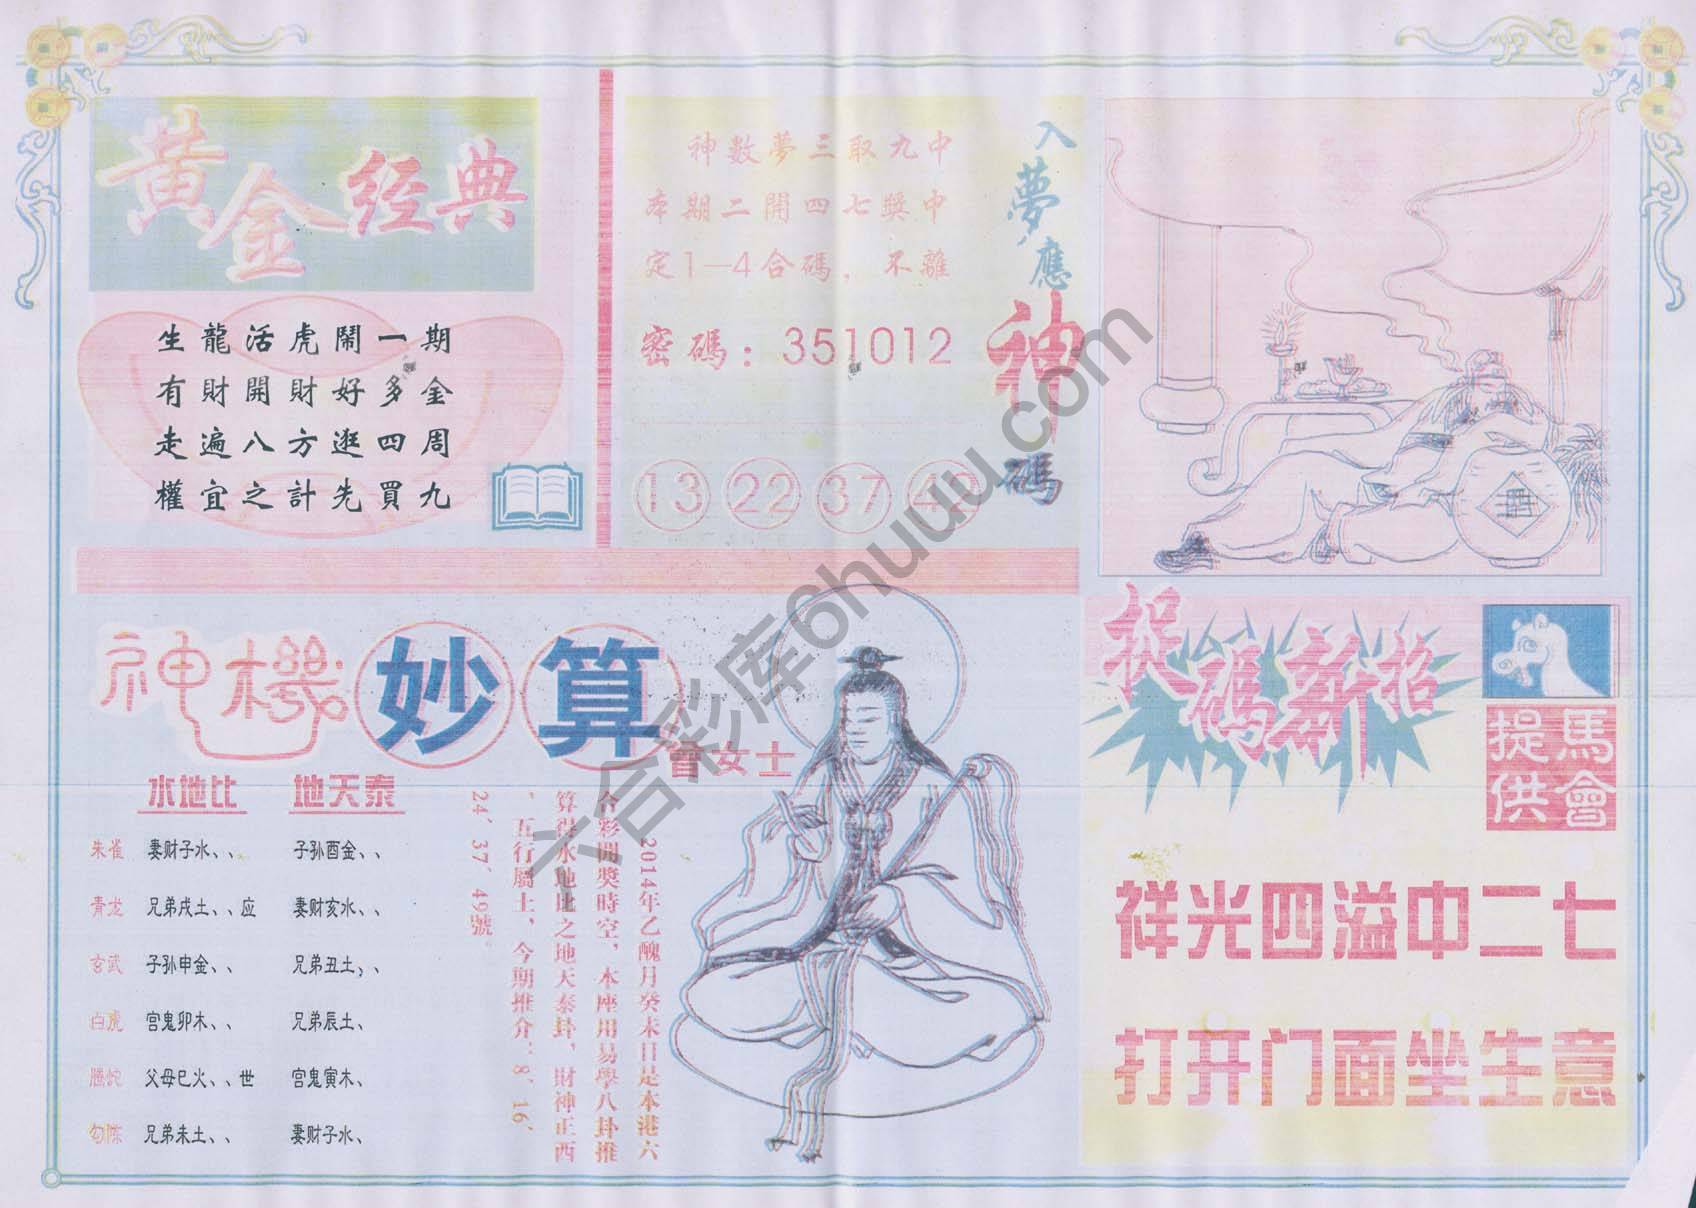 黄金经典
生龍活虎鬧一期
有財開財好多金
走遍八方逛四周
權宜之計先買九
神數夢三取九中
本期二開四七獎中
定1—4合碼，不離
密碼：351012
13 22 37 42
入夢應神碼
神機妙算
曾女士
水地比 地天泰
朱雀 妻财子水、、 子孙酉金、、
青龙 兄弟戌土、、应 妻财亥水、、
玄武 子孙申金、、 兄弟丑土、、
白虎 宫鬼卯木、、 兄弟辰土、
螣蛇 父母巳火、、世 宫鬼寅木、
勾陈 兄弟未土、、 妻财子水、
2014年乙醜月癸未日是本港六
合彩開獎時空，本座用易學八卦推
算得水地比之地天泰卦，財神正西
，五行屬土，今期推介：8、16、
24、37、49號。
捉碼新招
馬會
提供
祥光四溢中二七
打开门面坐生意
六合彩库6huuu.com